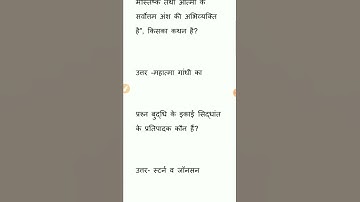 मस्तिष्क तथा आत्मा के
सर्वोत्तम अंश की अभिव्यक्ति
है", किसका कथन है?
उत्तर -महात्मा गांधी का
प्रश्न बुद्धि के इकाई सिद्धांत
के प्रतिपादक कौन हैं?
उत्तर- स्टर्न व जॉनसन